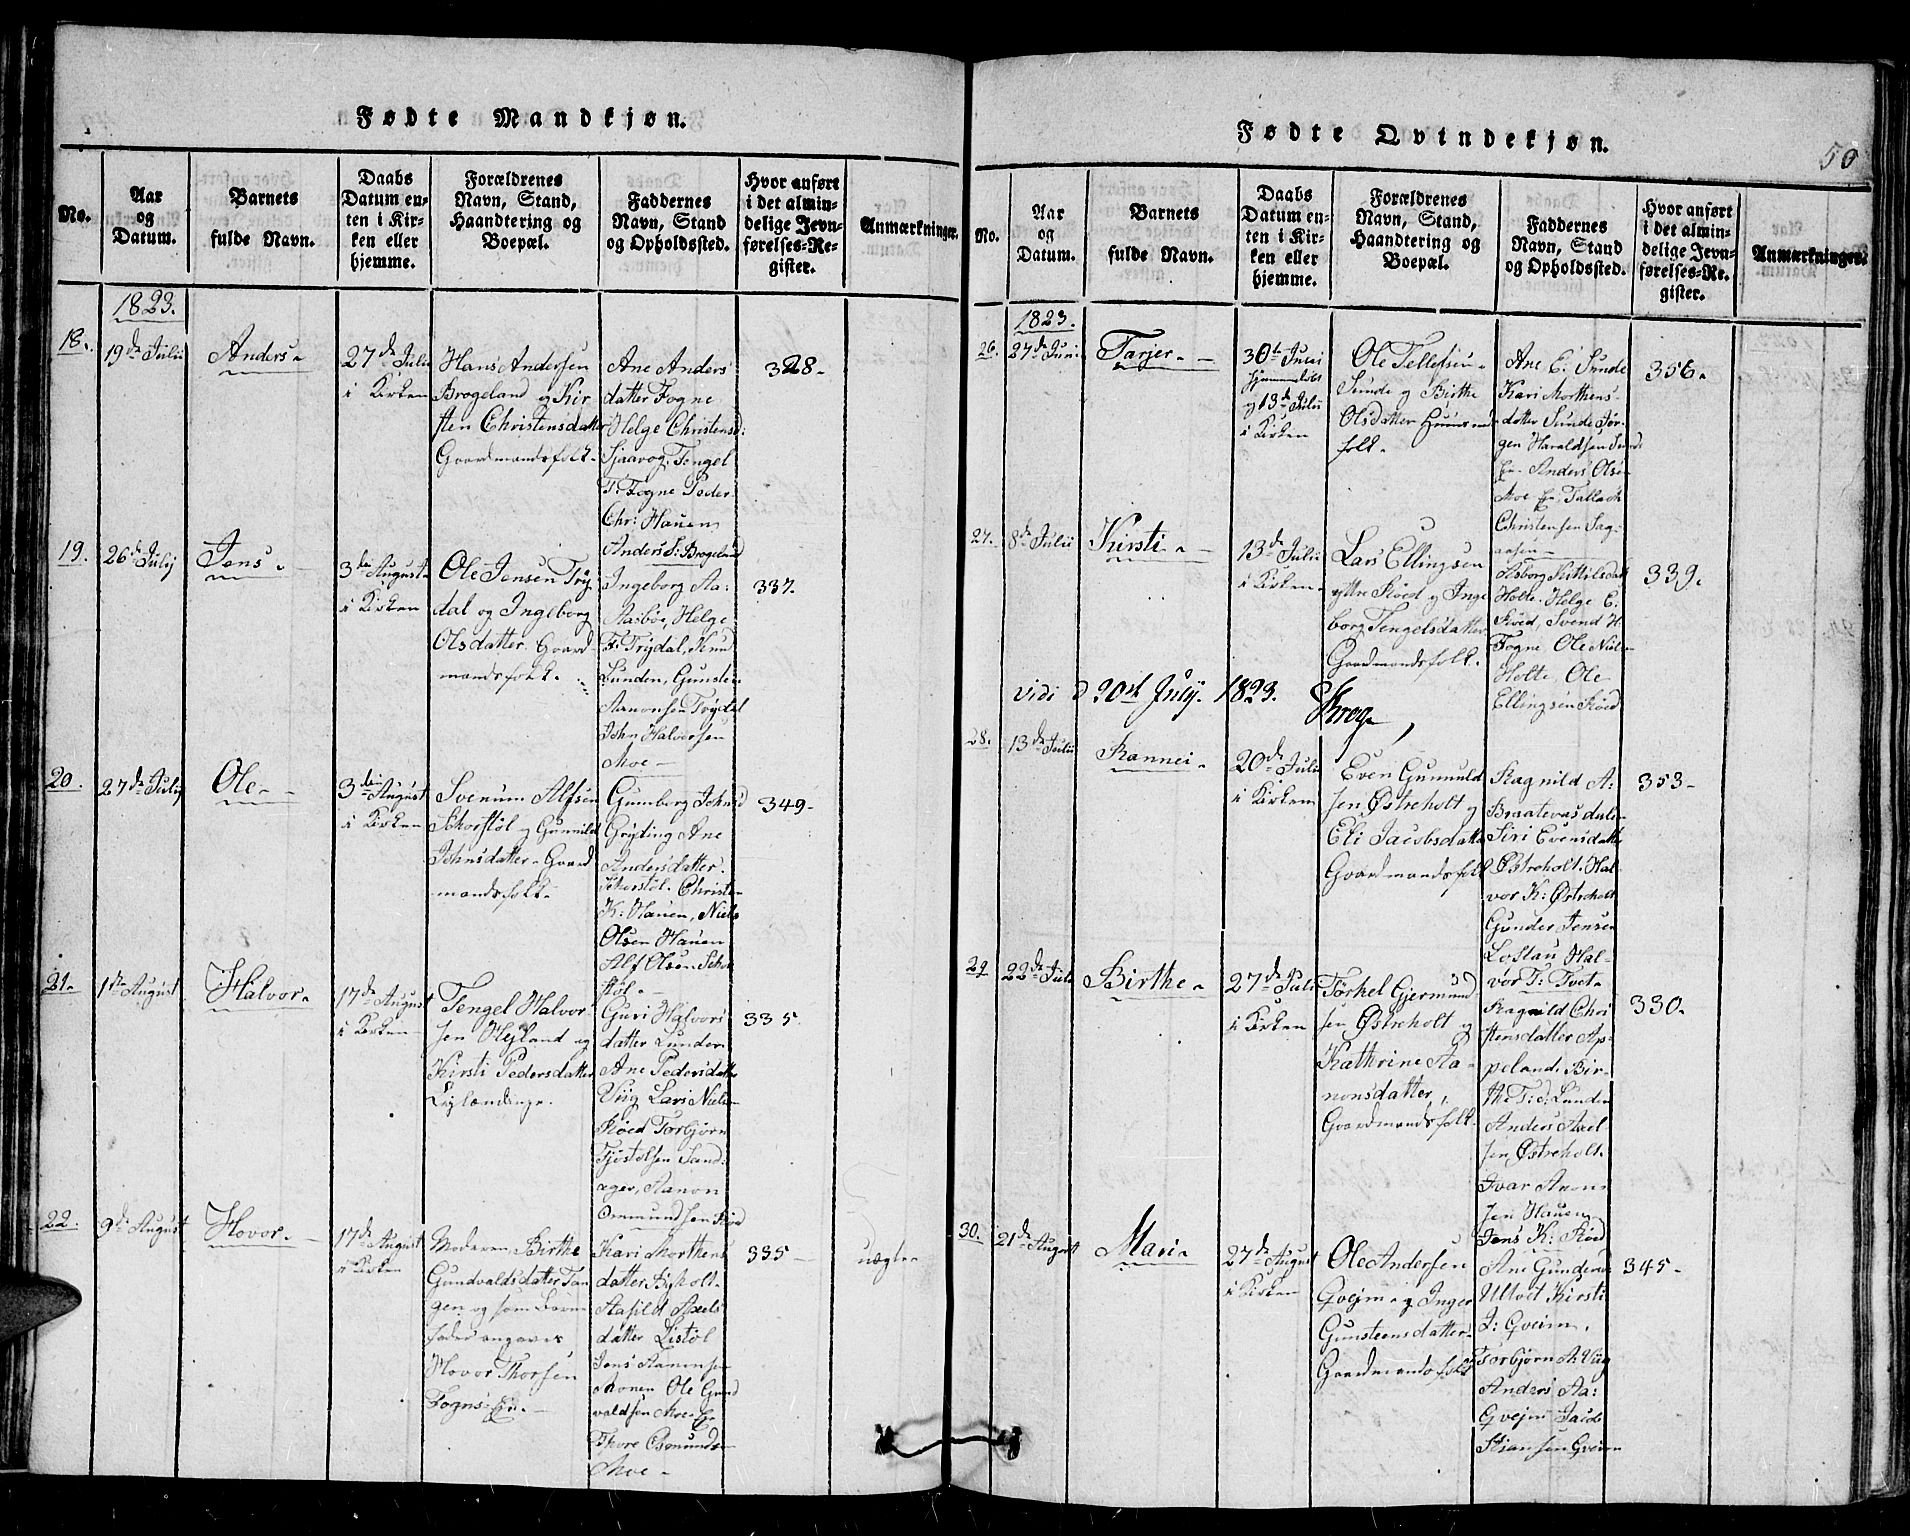 Fødte Mandkjøn.
No.
Aar
og
Datum.
Barnets
fulde Navn.
Daabs
Datum en-
ten i Kir-
ken eller
hjemme.
Forældrenes
Navn, Stand,
Haandtering og
Boepæl.
Faddernes
Navn, Stand
og Opholdssted.
Hvor anført
i det almin-
delige Jevn-
førelses-Re-
gister.
Anmærkninger.
1823.
18.
19de Julii
Anders
27de Juli
i Kirken
Hans Andersen
Brogeland og Kir
sten Christensdatter
Gaardmandsfolk.
Ane Anders
datter Fogne
Helge Christensd:
Sjaavog, Tengel
T: Fogne Peder
Chr: Hauen
Anders S: Brogeland
328.
19.
26de Julij
Jens
3die August
i Kirken
Ole Jensen Try
dal og Ingeborg
Olsdatter. Gaard
mandsfolk.
Ingeborg Aa:
Aasbøe, Helge
F: Trydal, Knud
Lunden, Gunsten
Aanonsen Trydal
John Halvorsen
Moe
337.
20.
27de Julij
Ole
3die August
i Kirken
Svenum Alfsen
Skorstøl og Gunnild
Johnsdatter. Gaard
mandsfolk.
Gumborg Johnsd
Gryting Ane
Andersdatter
Skorstøl. Christen
K: Hauen, Niels
Olsen Hauen
Alf Olsen Skor
støl.
349.
21.
1ste August
Halvor
17de August
i Kirken
Tengel Halvor
sen Hejland og
Kirsti Pedersdatter
Leilændinge.
Guri Halvors
datter Lunden
Ane Pedersdatter
Viig Lars Niels
Røed Torbjørn
Tjøstolsen Sand
ager, Aanon
Ommundsen Røed
335.
22.
9de August
Hovor
17de August
i Kirken
Moderen Birthe
Gundvaldsdatter Tan
gen og som Barne
fader angaves
Hovor Thorsen
Fogne
Kari Morthens
datter
Aasild Axels
datter Listøl
Jens Aanonsen
Monen Ole Gund
valdsen Moe
Thore Osmunds
Moe
335
uægte
Fødte Qvindekjøn.
50
No.
Aar
og
Datum.
Barnets
fulde Navn.
Daabs
Datum en-
ten i Kir-
ken eller
hjemme.
Forældrenes
Navn, Stand,
Haandtering og
Boepæl.
Faddernes
Navn, Stand
og Opholdssted.
Hvor anført
i det almin-
delige Jevn-
førelses-Re-
gister.
Anmærkninger.
1823.
26.
27de Juni
Tarjer
30te Juni
hjemmedøbt
og 13de Julii
i Kirken
Ole Tellefsen
Sunde og Birthe
Olsdatter Huusmands
folk.
Ane E. Sunde
Kari Morthens
datter Sunde Jør
gen Haraldsen Sunde
Anders Olsen
Moe Tallach
Christensen Sag
aasen
356.
27.
8de Julii
Kirsti
13de Julii
i Kirken
Lars Ellingsen
yttre Røed og Inge
borg Tengelsdatter
Gaardmandsfolk.
Aasborg Kittilsdatt
Holte. Helge E.
Røed, Svend H.
Fogne Ole Niels
Holte Ole
Ellingsen Røed
339.
vidi d 20st July. 1823. Krog
28.
13de Julii
Rannei
20de Julii
i Kirken
Even Gunnuld
sen Østreholt og
Eli Jacobsdatter
Gaardmandsfolk
Ragnild A:
Braatevasdalen
Siri Evensdatter
Østreholt. Hal
vor K: Østreholt
Gunder Jensen
Lostau Hal
vor T: Tvet
353
29
22de Juli
Birthe
27de Juli
i Kirken
Tørkel Gjermund
sen Østreholt og
Kathrine Aa
nonsdatter,
Gaardmandsfolk.
Ragnild Chri
stensdatter Ap
peland. Bir
the T: d: Lunden
Anders Axel
sen Østreholt.
Ivar Anon
sen Hauen
Jens K: Røed
330.
30.
21de August
Mari
27de August
i Kirken
Ole Andersen
Gvejm og Inger
Gunsteensdatter
Gaardmandsfolk
Ane Gunders
Ultvet Kirsti
J: Gveim.
Torbjørn A. Viig
Anders Aa:
Gvejm Jacob
Stiansen Gveim
345